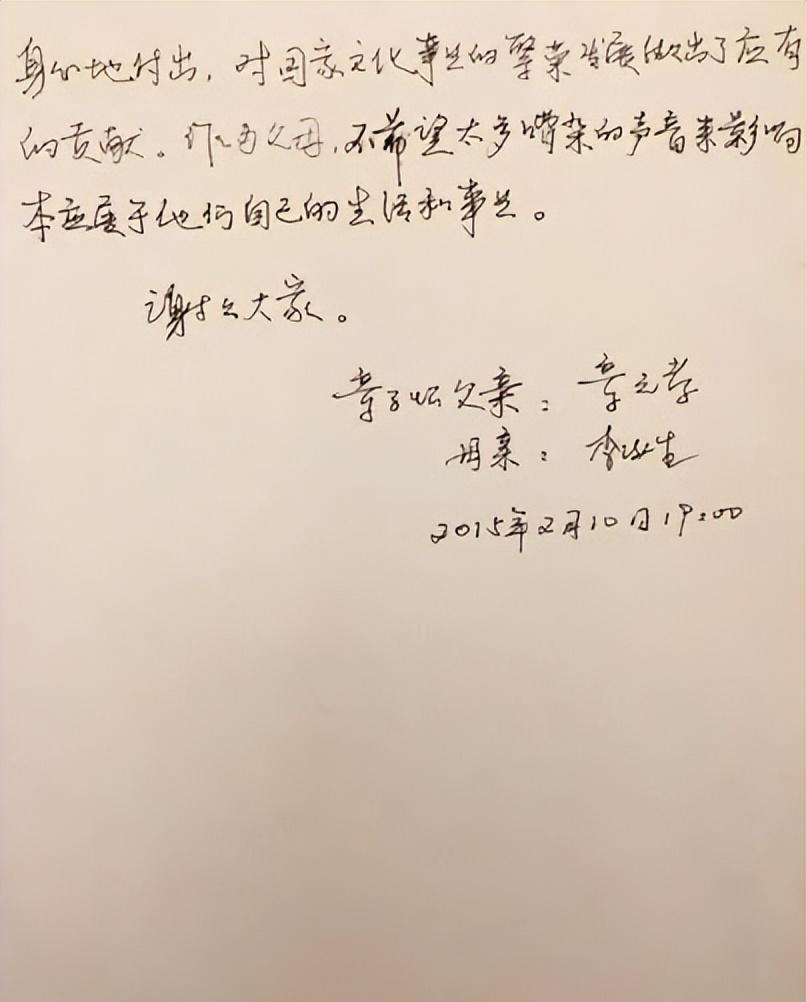 身心地付出，对国家文化事业的繁荣发展做出了应有
的贡献。作为父母，不希望太多嘈杂的声音来影响
本应属于他们自己的生活和事业。
谢谢大家。
章子怡父亲：章元孝
母亲：李涿生
2015年2月10日19:00